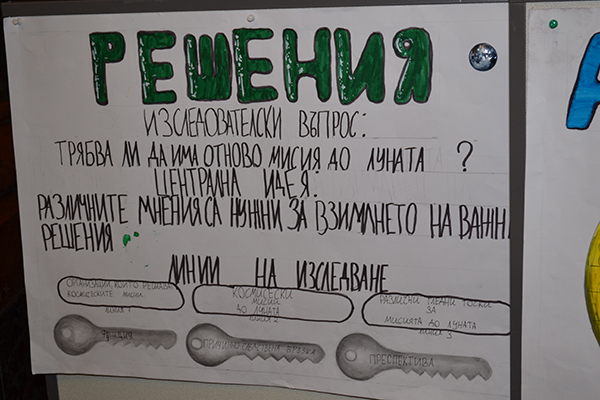 РЕШЕНИЯ
ИЗСЛЕДОВАТЕЛСКИ ВЪПРОС:
ТРЯБВА ЛИ ДА ИМА ОТНОВО МИСИЯ ДО ЛУНАТА ?
ЦЕНТРАЛНА ИДЕЯ:
РАЗЛИЧНИТЕ МНЕНИЯ СА НУЖНИ ЗА ВЗИМАНЕТО НА ВАЖН
РЕШЕНИЯ
ЛИНИИ НА ИЗСЛЕДВАНЕ
ОРГАНИЗАЦИИ, КОИТО РЕШАВАТ
КОСМИЧЕСКИТЕ МИСИИ
ЛИНИЯ 1
КОСМИЧЕСКИ
МИСИИ
ДО ЛУНАТА
ЛИНИЯ 2
РАЗЛИЧНИ ГЛЕДНИ ТОЧКИ
ЗА
МИСИЯТА ДО ЛУНАТА
ЛИНИЯ 3
ФУНКЦИЯ
ВРЪЗКА
ПРЕСПЕКТИВА